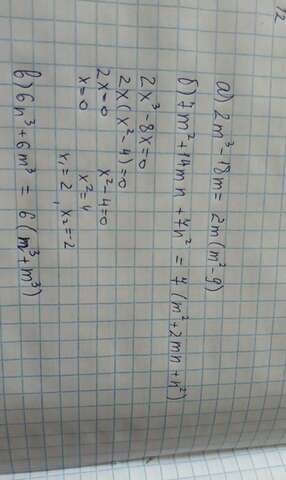 12
а) 2m³-18m = 2m(m²-9)
б) 7m²+14mn+7n² = 7(m²+2mn+n²)
2x³-8x=0
2x(x²-4)=0
2x=0 x²-4=0
x=0 x²=4
x₁=2, x₂=-2
в) 6n³+6m³ = 6(m³+m³)